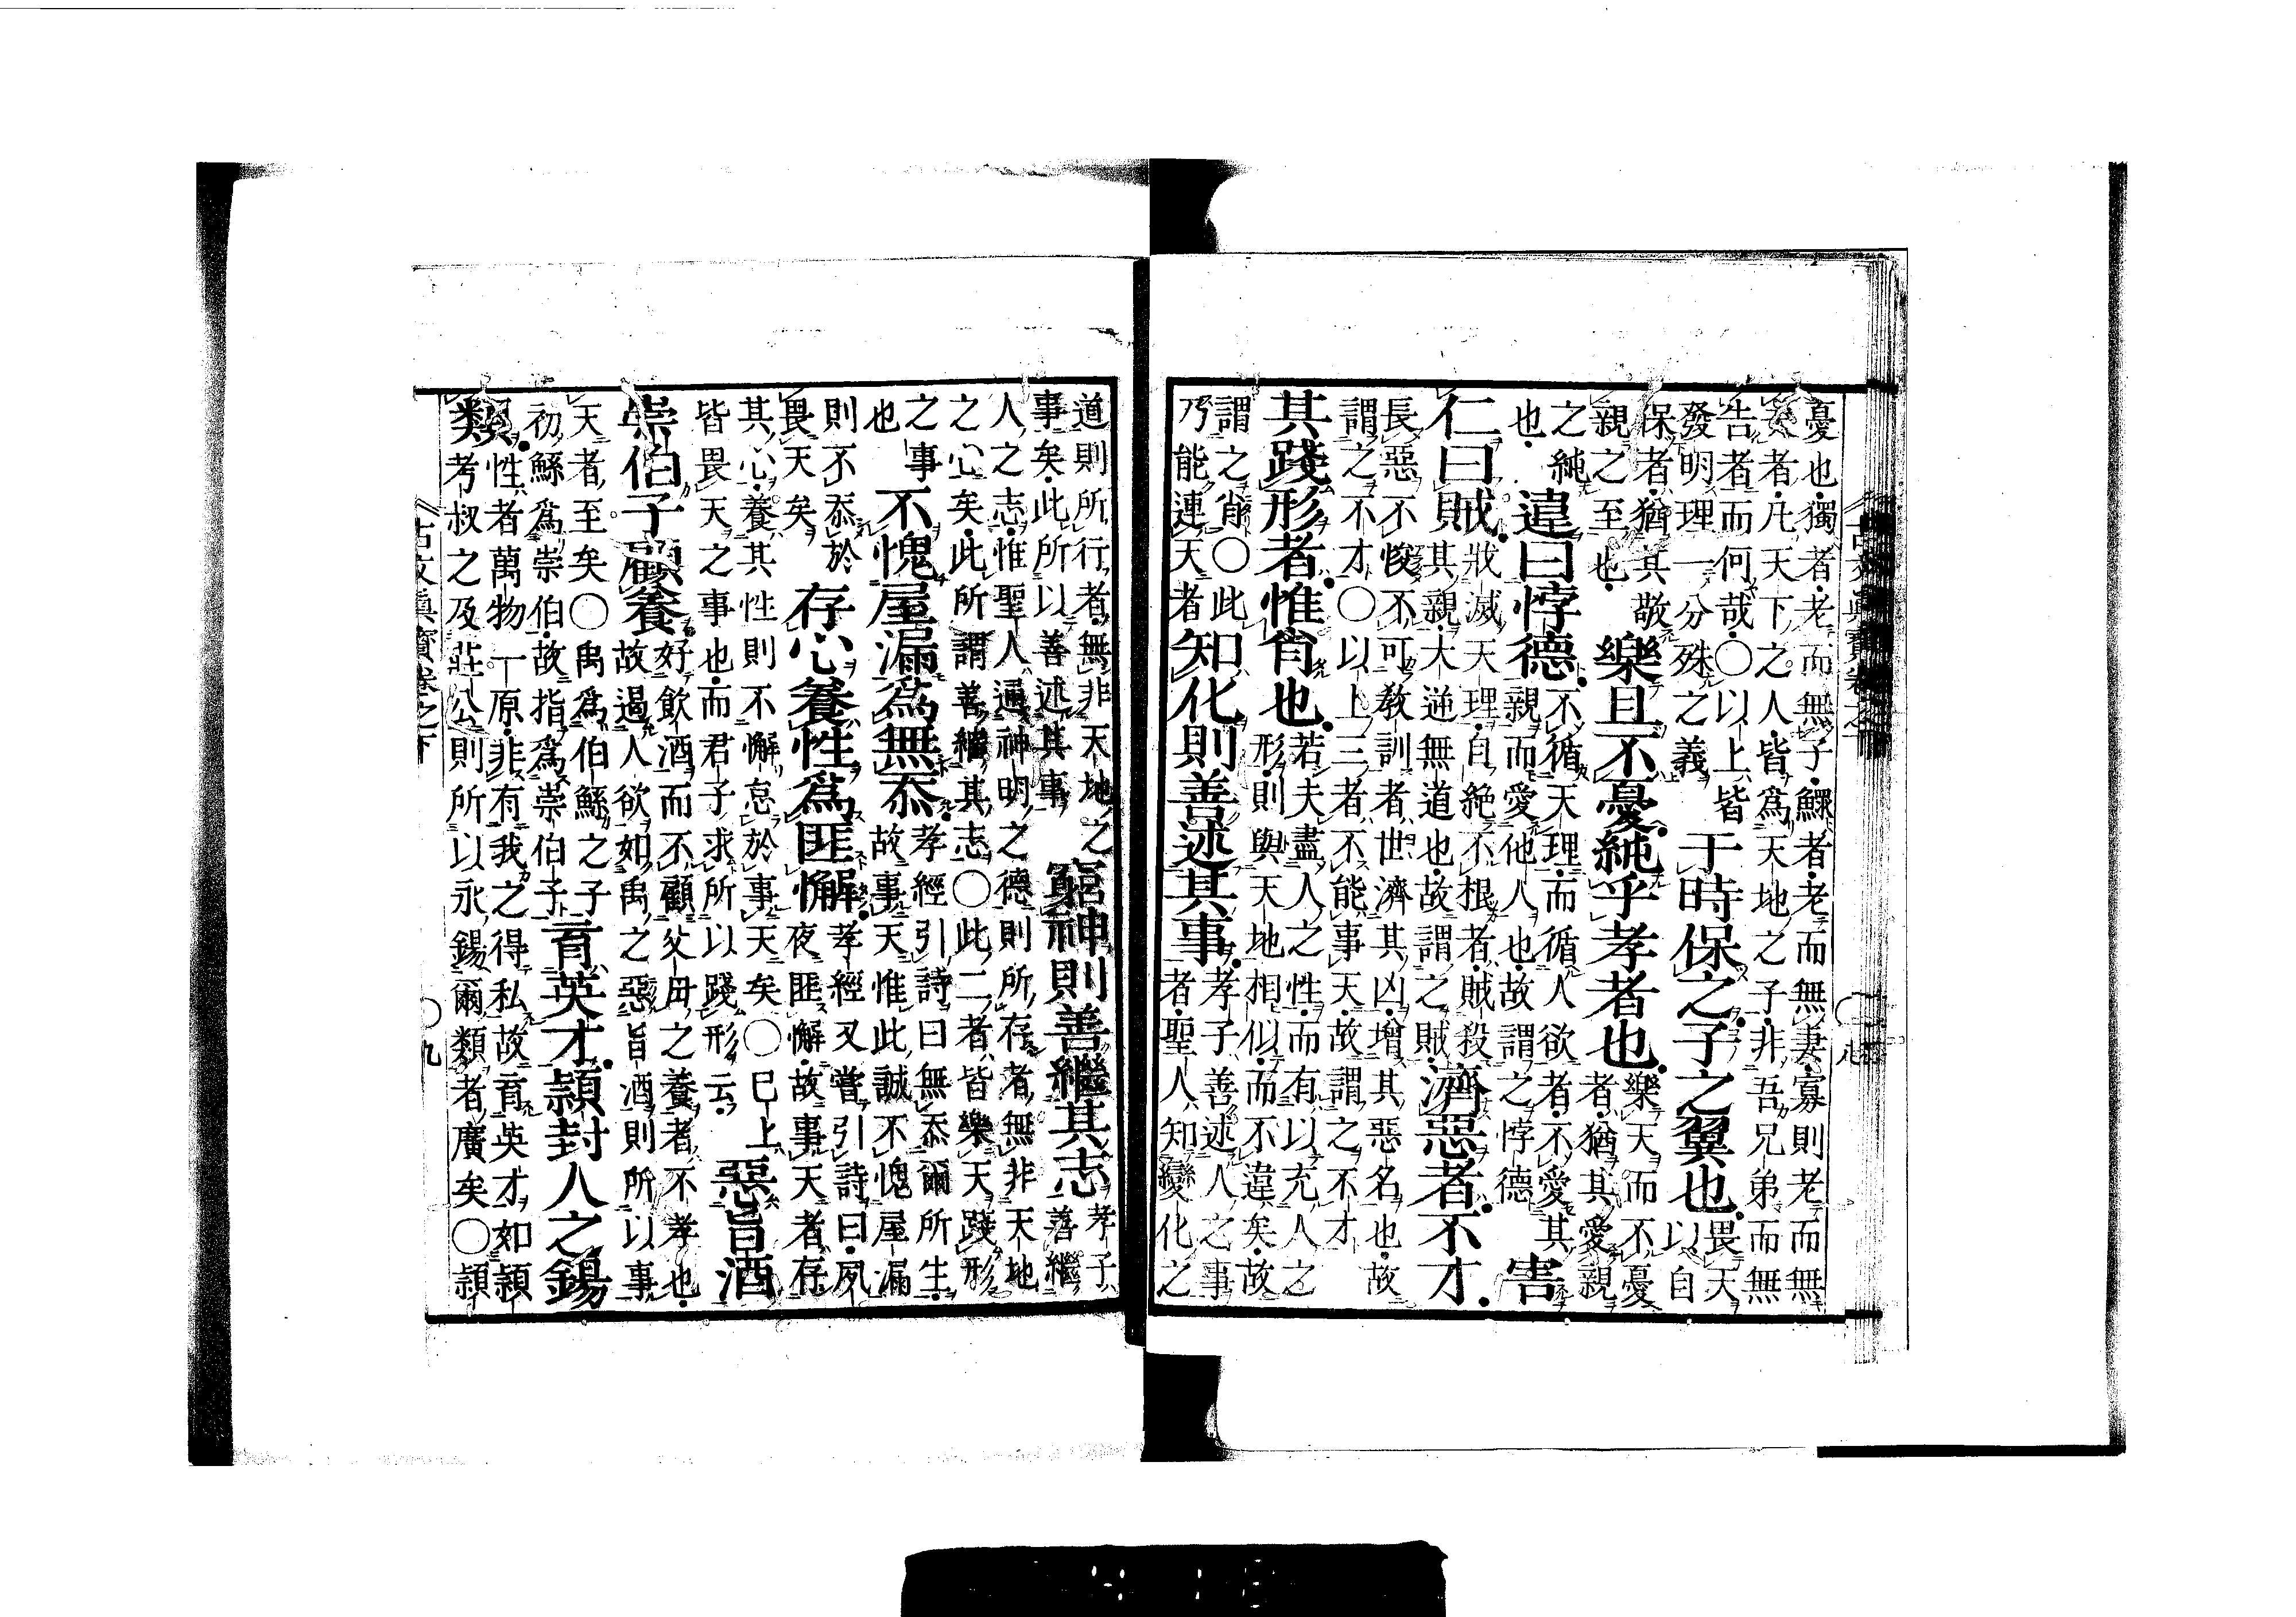 憂也獨者老而無子鰥者老而無妻寡則老而無
夫者凡天下之人皆爲天地之子非吾兄弟而無
告者而何哉○以上皆
發明理一分殊之義
于時保之子之翼也
畏天
以自
保者猶其敬
親之至也
樂且不憂純乎孝者也
樂天而不憂
者猶其愛親
之純
也
違曰悖德
不循天理而循人欲者不愛其
親而愛他人也故謂之悖德
害
仁曰賊
戕滅天理自絶不根者賊殺
其親大逆無道也故謂之賊
濟惡者不才
長惡不悛不可敎訓者世濟其凶增其惡名也故
謂之不才○以上三者不能事天故謂之不才
其踐形者惟肖也
若夫盡人之性而有以充人之
形則與天地相似而不違矣故
謂之肖○此
乃能連天者
知化則善述其事
孝子善述人之事
者聖人知變化之
道則所行者無非天地之
事矣此所以善述其事
窮神則善繼其志
孝子
善繼
人之志惟聖人通神明之德則所存者無非天地
之心矣此所謂善繼其志○此二者皆樂天踐形
之事
也
不愧屋漏爲無忝
孝經引詩曰無忝爾所生
故事天惟此誠不愧屋漏
則不忝於
畏天矣
存心養性爲匪懈
孝經又嘗引詩曰夙
夜匪懈故事天者存
其心養其性則不懈怠於事天矣○已上
皆畏天之事也而君子求所以踐形云
惡旨酒
崇伯子顧養
好飮酒而不顧父母之養者不孝也
故遏人欲如禹之惡旨酒則所以事
天者至矣○禹爲伯鯀之子
初鯀爲崇伯故指爲崇伯子
育英才潁封人之錫
類
性者萬物一原非有我之得私故育英才如潁
考叔之及莊公則所以永錫爾類者廣矣○潁
古文眞寳卷之下
○九